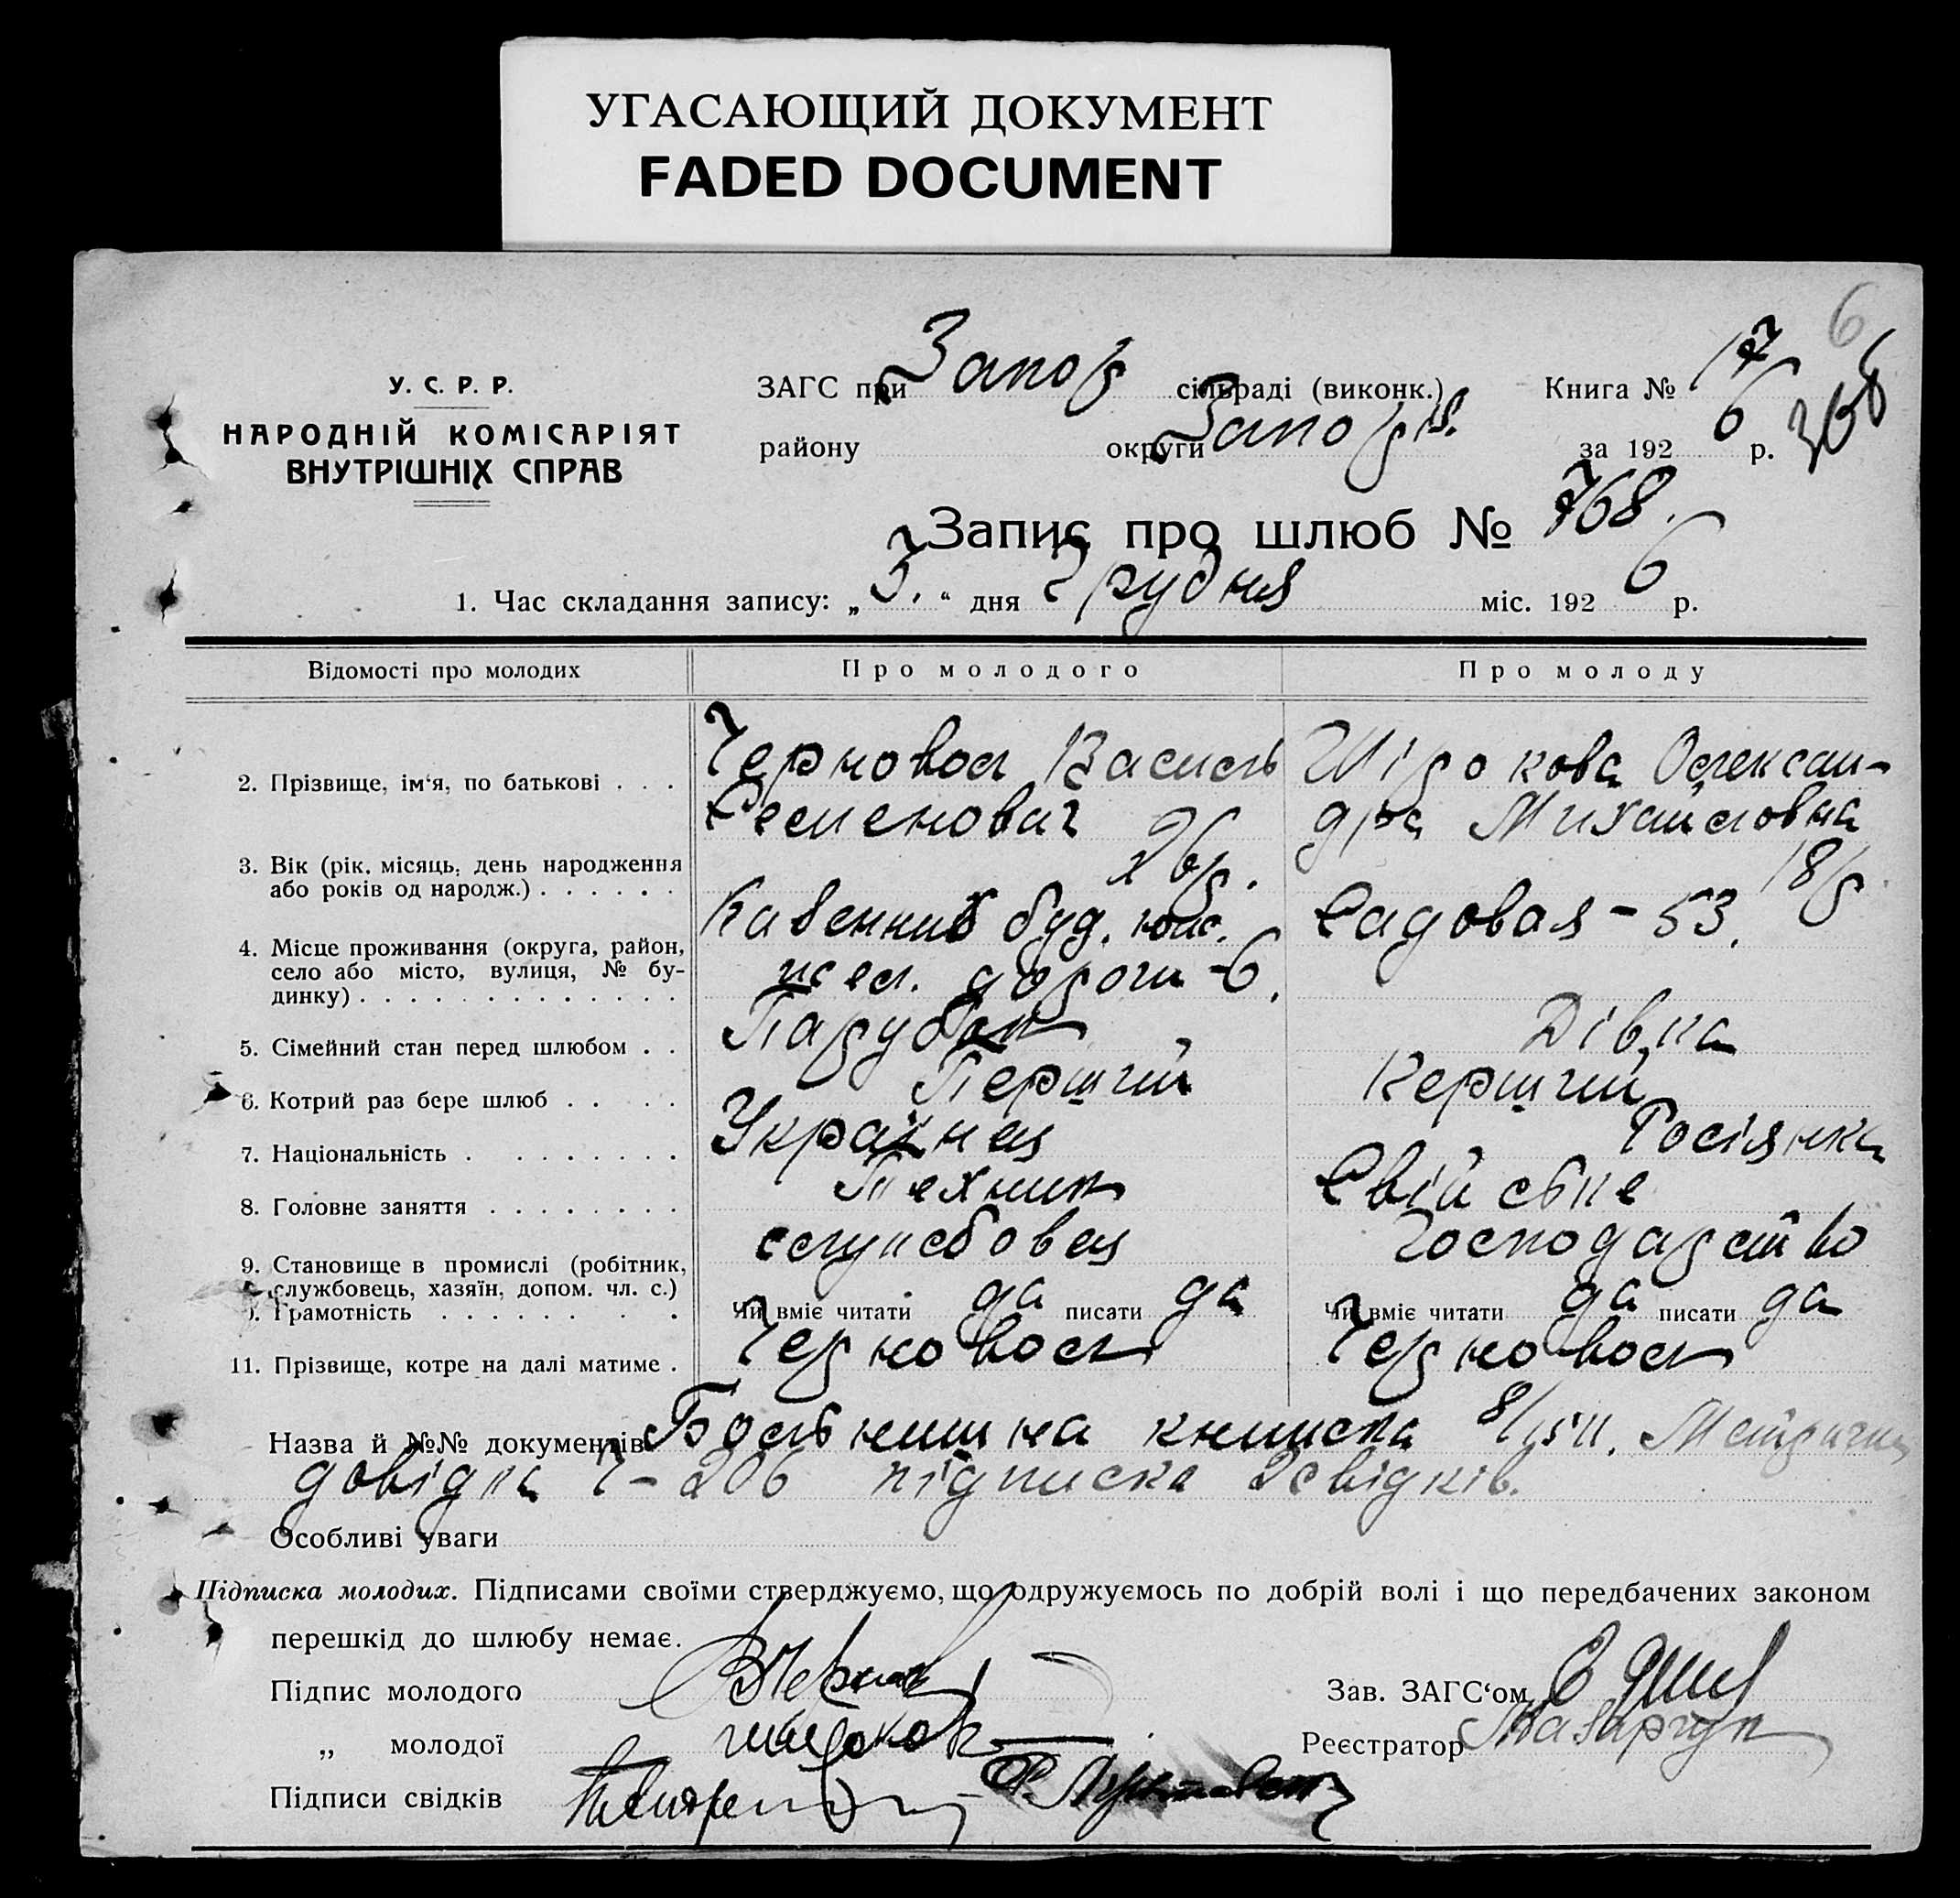 УГАСАЮЩИЙ ДОКУМЕНТ
FADED DOCUMENT
6
У. С. Р. Р.
НАРОДНІЙ КОМІСАРІЯТ
ВНУТРІШНІХ СПРАВ
ЗАГС при Запор сільраді (виконк.) Книга № 17
району округи Запоріз. за 1926 р.
Запис про шлюб № 768.
1. Час складання запису: „3.“ дня Грудня міс. 1926 р.
Відомості про молодих Про молодого Про молоду
2. Прізвище, ім‘я, по батькові . . . Чорновол Василь Шірокова Олексан-
Семенович дра Михайловна
3. Вік (рік, місяць, день народження 26 р. 18 р
або років од народж.) . . . . . .
4. Місце проживання (округа, район, буд. Садовая - 53.
село або місто, вулиця, № бу- дороги - 6.
динку) . . . . . . . . . . . . .
5. Сімейний стан перед шлюбом . . Парубок Дівка
6. Котрий раз бере шлюб . . . . . Перший Перший
7. Національність . . . . . . . . Українец Росіянка
8. Головне заняття . . . . . . . . Техник Свійське
9. Становище в промислі (робітник, службовец господарство
службовець, хазяїн, допом. чл. с.)
Грамотність . . . . . . . Чи вміє читати да писати да Чи вміє читати да писати да
11. Прізвище, котре на далі матиме . Чорновол Чорновол
Назва й №№ документів книжка Метрична
довідка 7-206 підписка 2 свідків.
Особливі уваги
Підписка молодих. Підписами своїми стверджуємо, що одружуємось по добрій волі і що передбачених законом
перешкід до шлюбу немає.
Підпис молодого Зав. ЗАГС‘ом
„ молодої Реєстратор
Підписи свідків